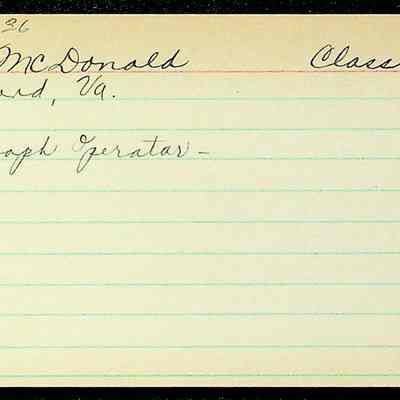 36
McDonald Class
ard, Va.
raph Operator -